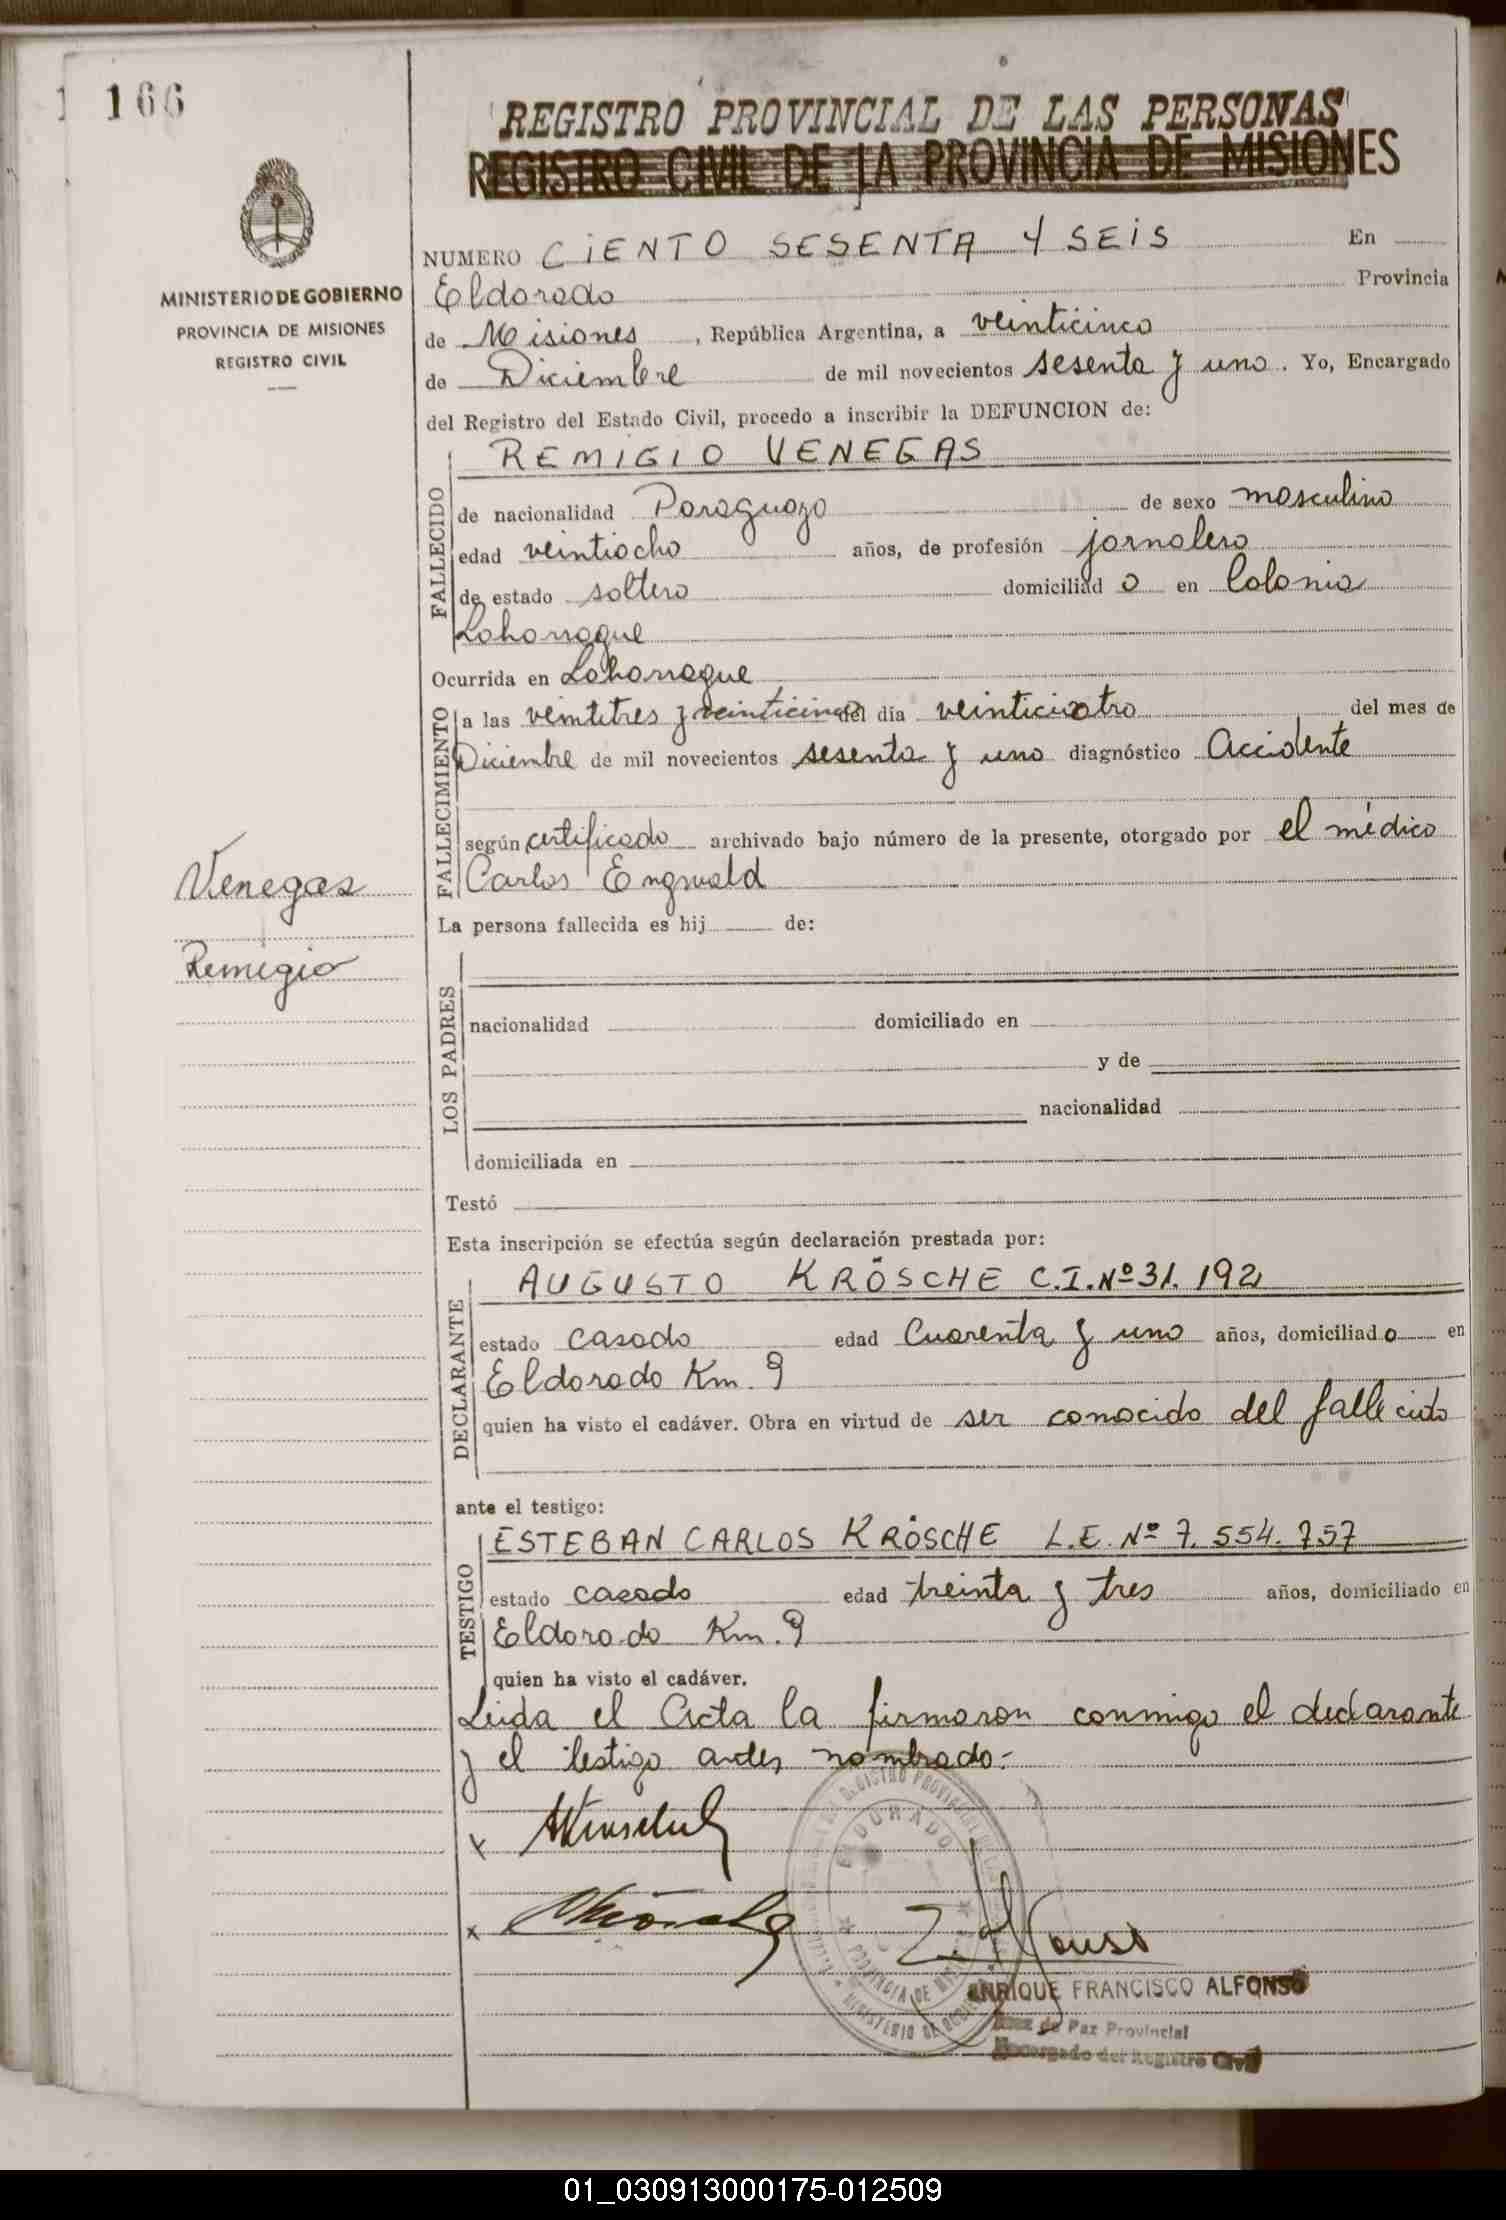 166
REGISTRO PROVINCIAL DE LAS PERSONAS
REGISTRO CIVIL DE LA PROVINCIA DE MISIONES
MINISTERIO DE GOBIERNO
PROVINCIA DE MISIONES
REGISTRO CIVIL
NUMERO CIENTO SESENTA Y SEIS En
Eldorado Provincia
de Misiones, República Argentina, a veinticinco
de Diciembre de mil novecientos sesenta y uno. Yo, Encargado
del Registro del Estado Civil, procedo a inscribir la DEFUNCION de:
FALLECIDO
REMIGIO VENEGAS
de nacionalidad Paraguayo de sexo masculino
edad veintiocho años, de profesión jornalero
de estado soltero domiciliado en Colonia
Laharrague
Ocurrida en Laharrague
FALLECIMIENTO
a las veintitres y veinticinco del día veinticuatro del mes de
Diciembre de mil novecientos sesenta y uno diagnóstico Accidente
según certificado archivado bajo número de la presente, otorgado por el médico
Carlos Engwald
Venegas
Remigio
La persona fallecida es hij de:
LOS PADRES
nacionalidad domiciliado en
y de
nacionalidad
domiciliada en
Testó
Esta inscripción se efectúa según declaración prestada por:
DECLARANTE
AUGUSTO KRÖSCHE C.I. Nº 31.192
estado casado edad Cuarenta y uno años, domiciliado en
Eldorado Km. 9
quien ha visto el cadáver. Obra en virtud de ser conocido del fallecido
ante el testigo:
TESTIGO
ESTEBAN CARLOS KRÖSCHE L.E. Nº 7.554.757
estado casado edad treinta y tres años, domiciliado en
Eldorado Km. 9
quien ha visto el cadáver.
Leida el Acta la firmaron conmigo el declarante
y el testigo antes nombrado.-
x
x
ELDORADO
PROVINCIA DE MISIONES
MINISTERIO DE GOBIERNO
ENRIQUE FRANCISCO ALFONSO
Juez de Paz Provincial
Encargado del Registro Civil
01_030913000175-012509